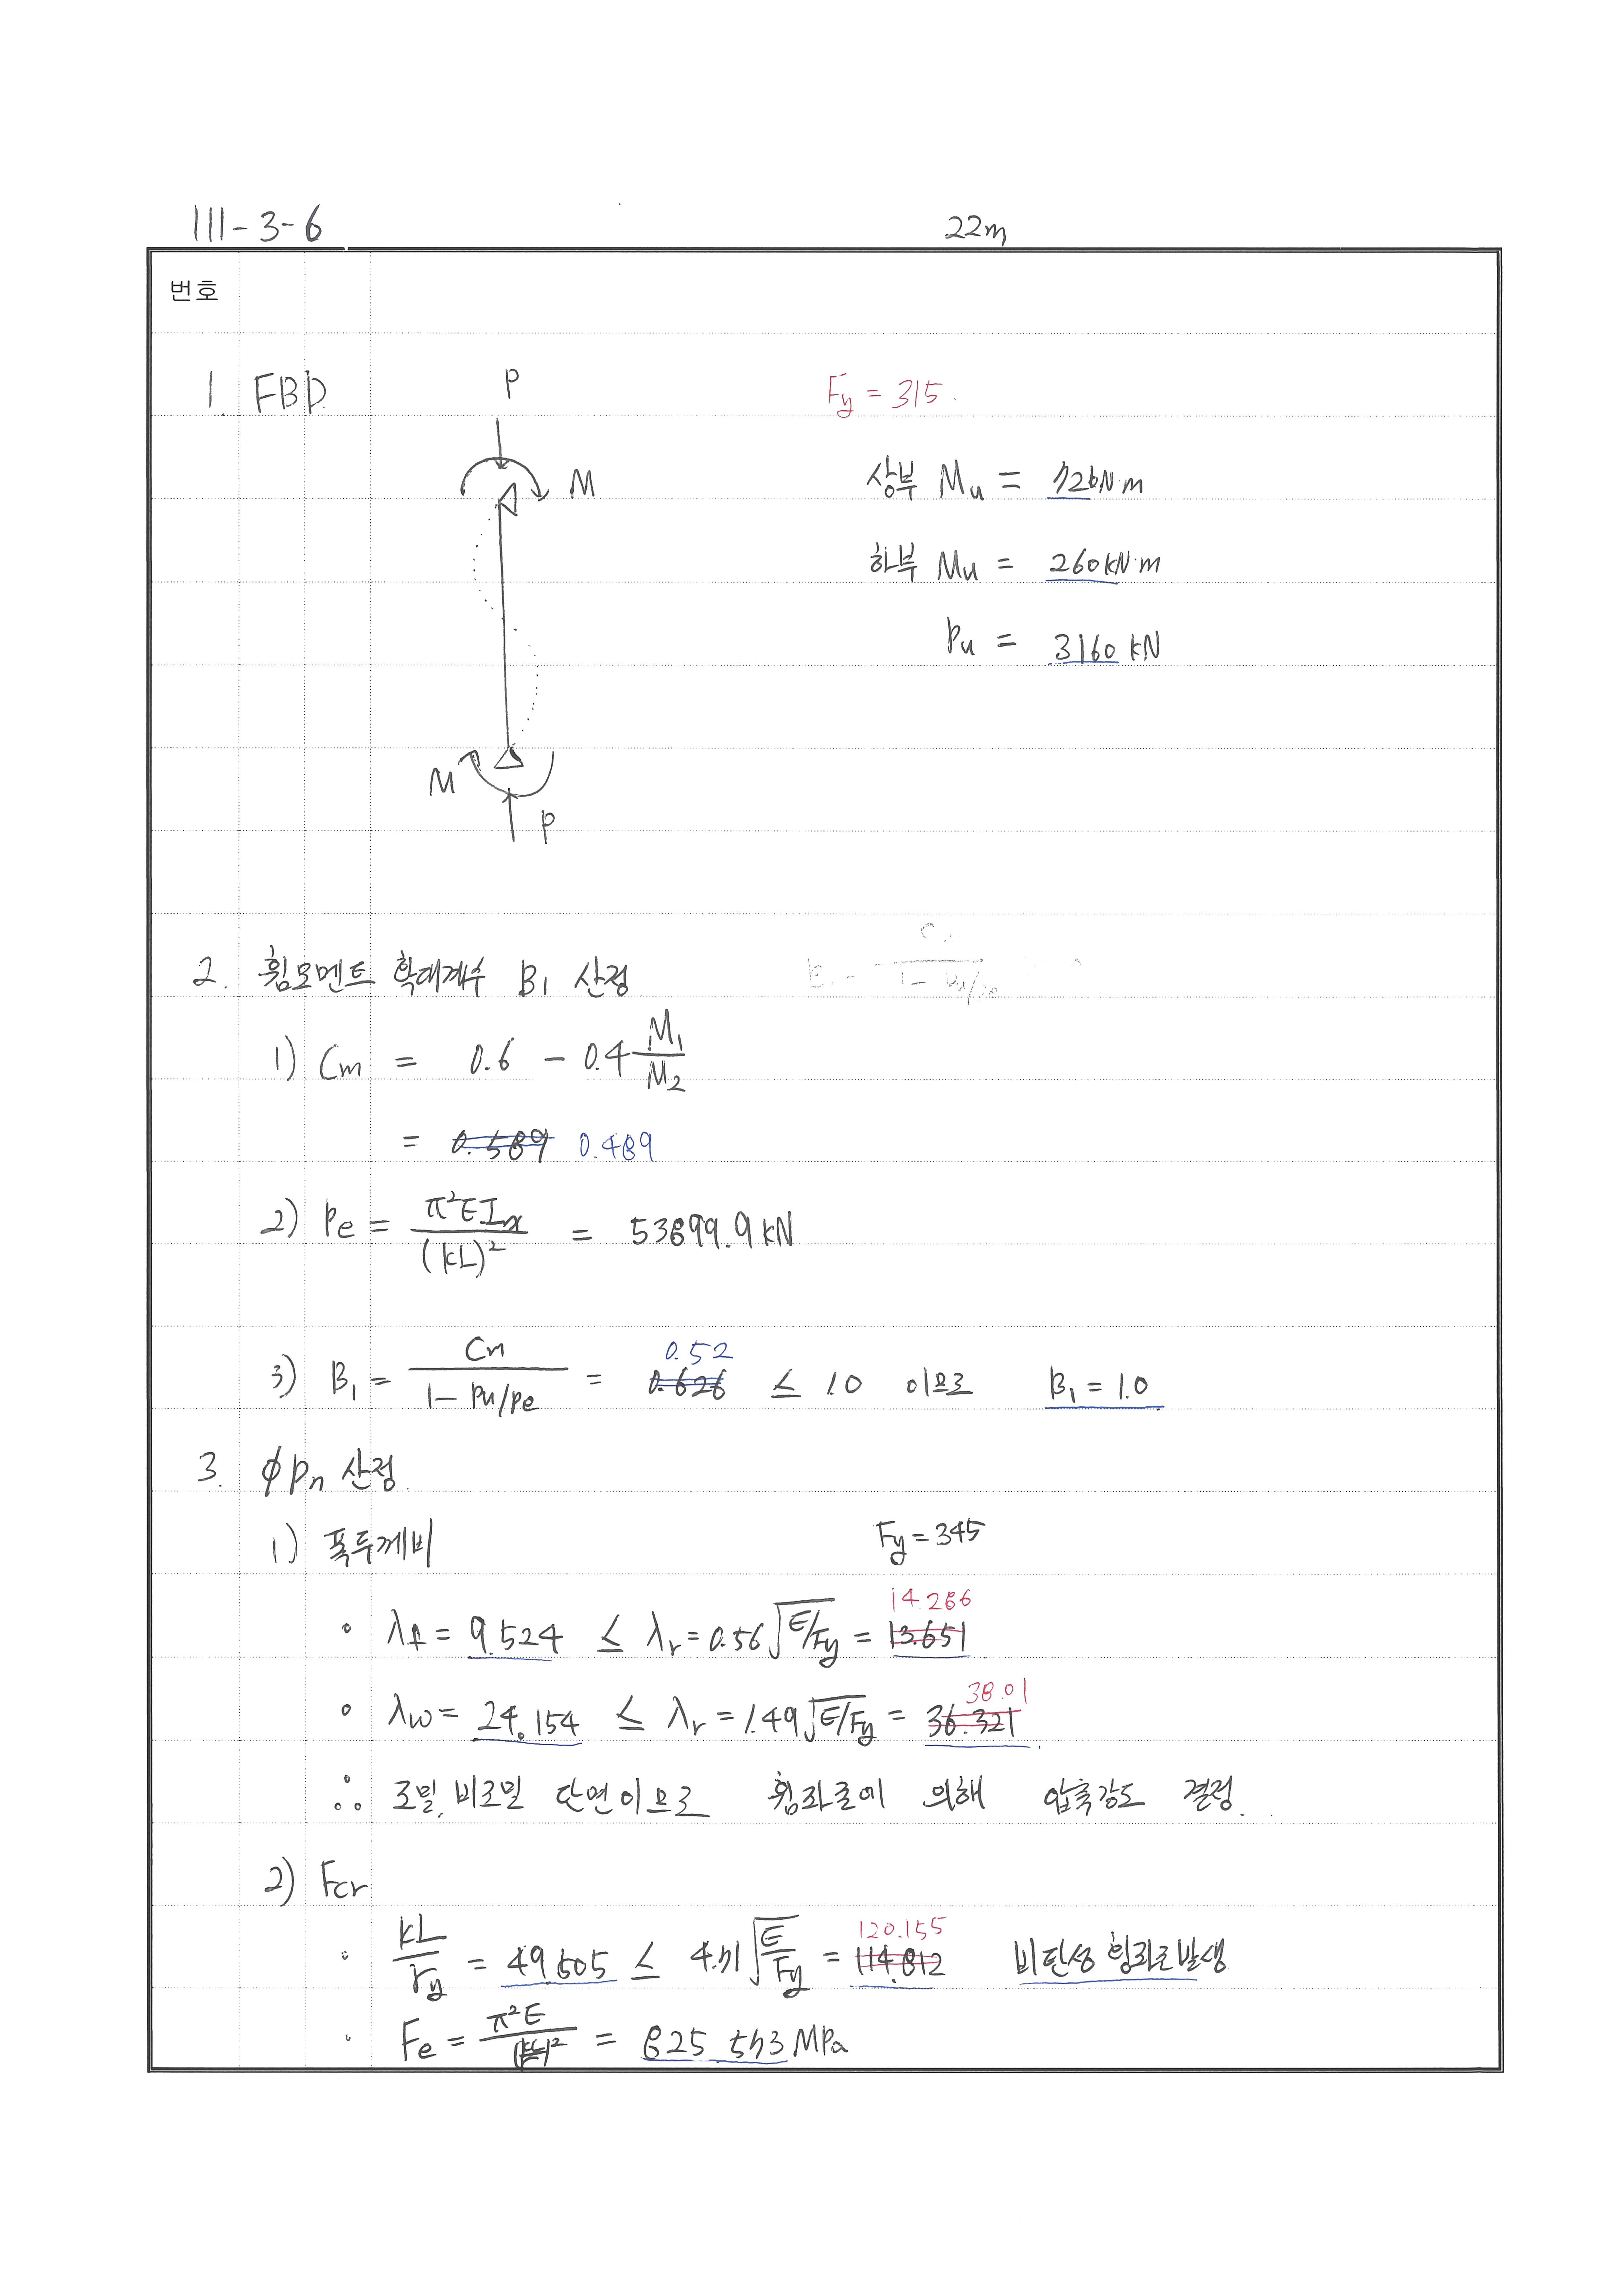 III-3-6 22m
번호
1. FBD P Fy = 315
M
상부 Mu = 720kN·m
하부 Mu = 260kN·m
Pu = 3160 kN
M
P
2. 휨모멘트 확대계수 B1 산정
1) Cm = 0.6 - 0.4 M1/M2
= 0.589 0.489
2) Pe = π²EIx/(kL)² = 53899.9 kN
3) B1 = Cm/(1 - Pu/Pe) = 0.626 0.52 ≤ 1.0 이므로 B1 = 1.0
3. φPn 산정.
1) 폭두께비 Fy = 345
• λf = 9.524 ≤ λr = 0.56√E/Fy = 13.651 14.286
• λw = 24.154 ≤ λr = 1.49√E/Fy = 36.321 38.01
∴ 조밀, 비조밀 단면이므로 휨좌굴에 의해 압축강도 결정.
2) Fcr
• kL/ry = 49.505 ≤ 4.71√E/Fy = 114.812 120.155 비탄성 휨좌굴발생
• Fe = π²E/(kL/r)² = 825.573 MPa